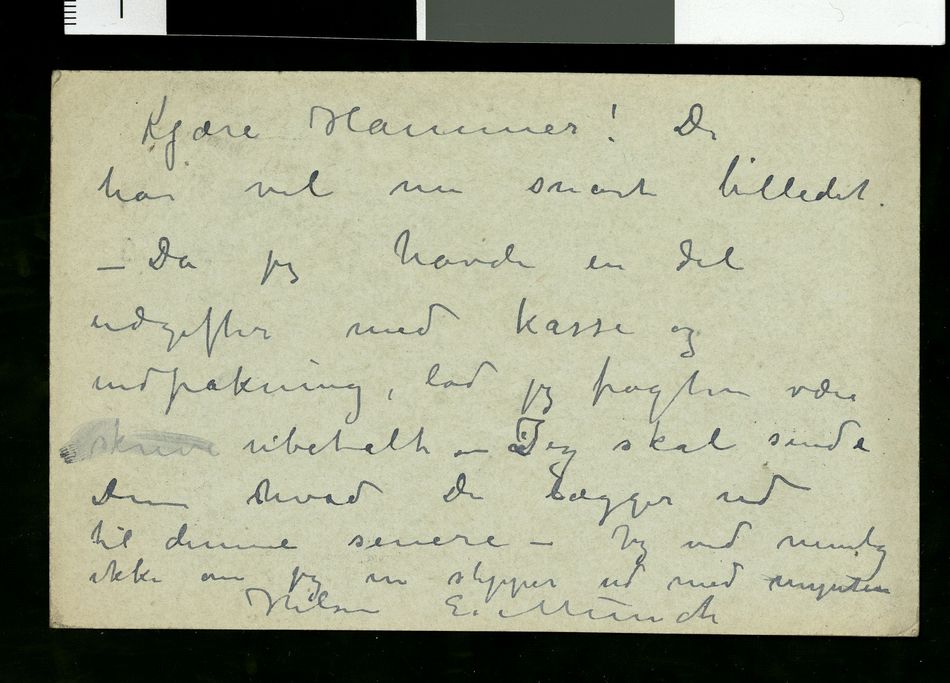 Kjære Hammer! De
har vel nu snart billedet.
– Da jeg havde en del
udgifter med kasse og
indpakning, lod jeg fragten være
ubetalt – Jeg skal sende
Dem hvad De lægger ud
til denne senere – Jeg ved nemlig
ikke om jeg nu slipper ud med mynten
Hilsen E. Munch